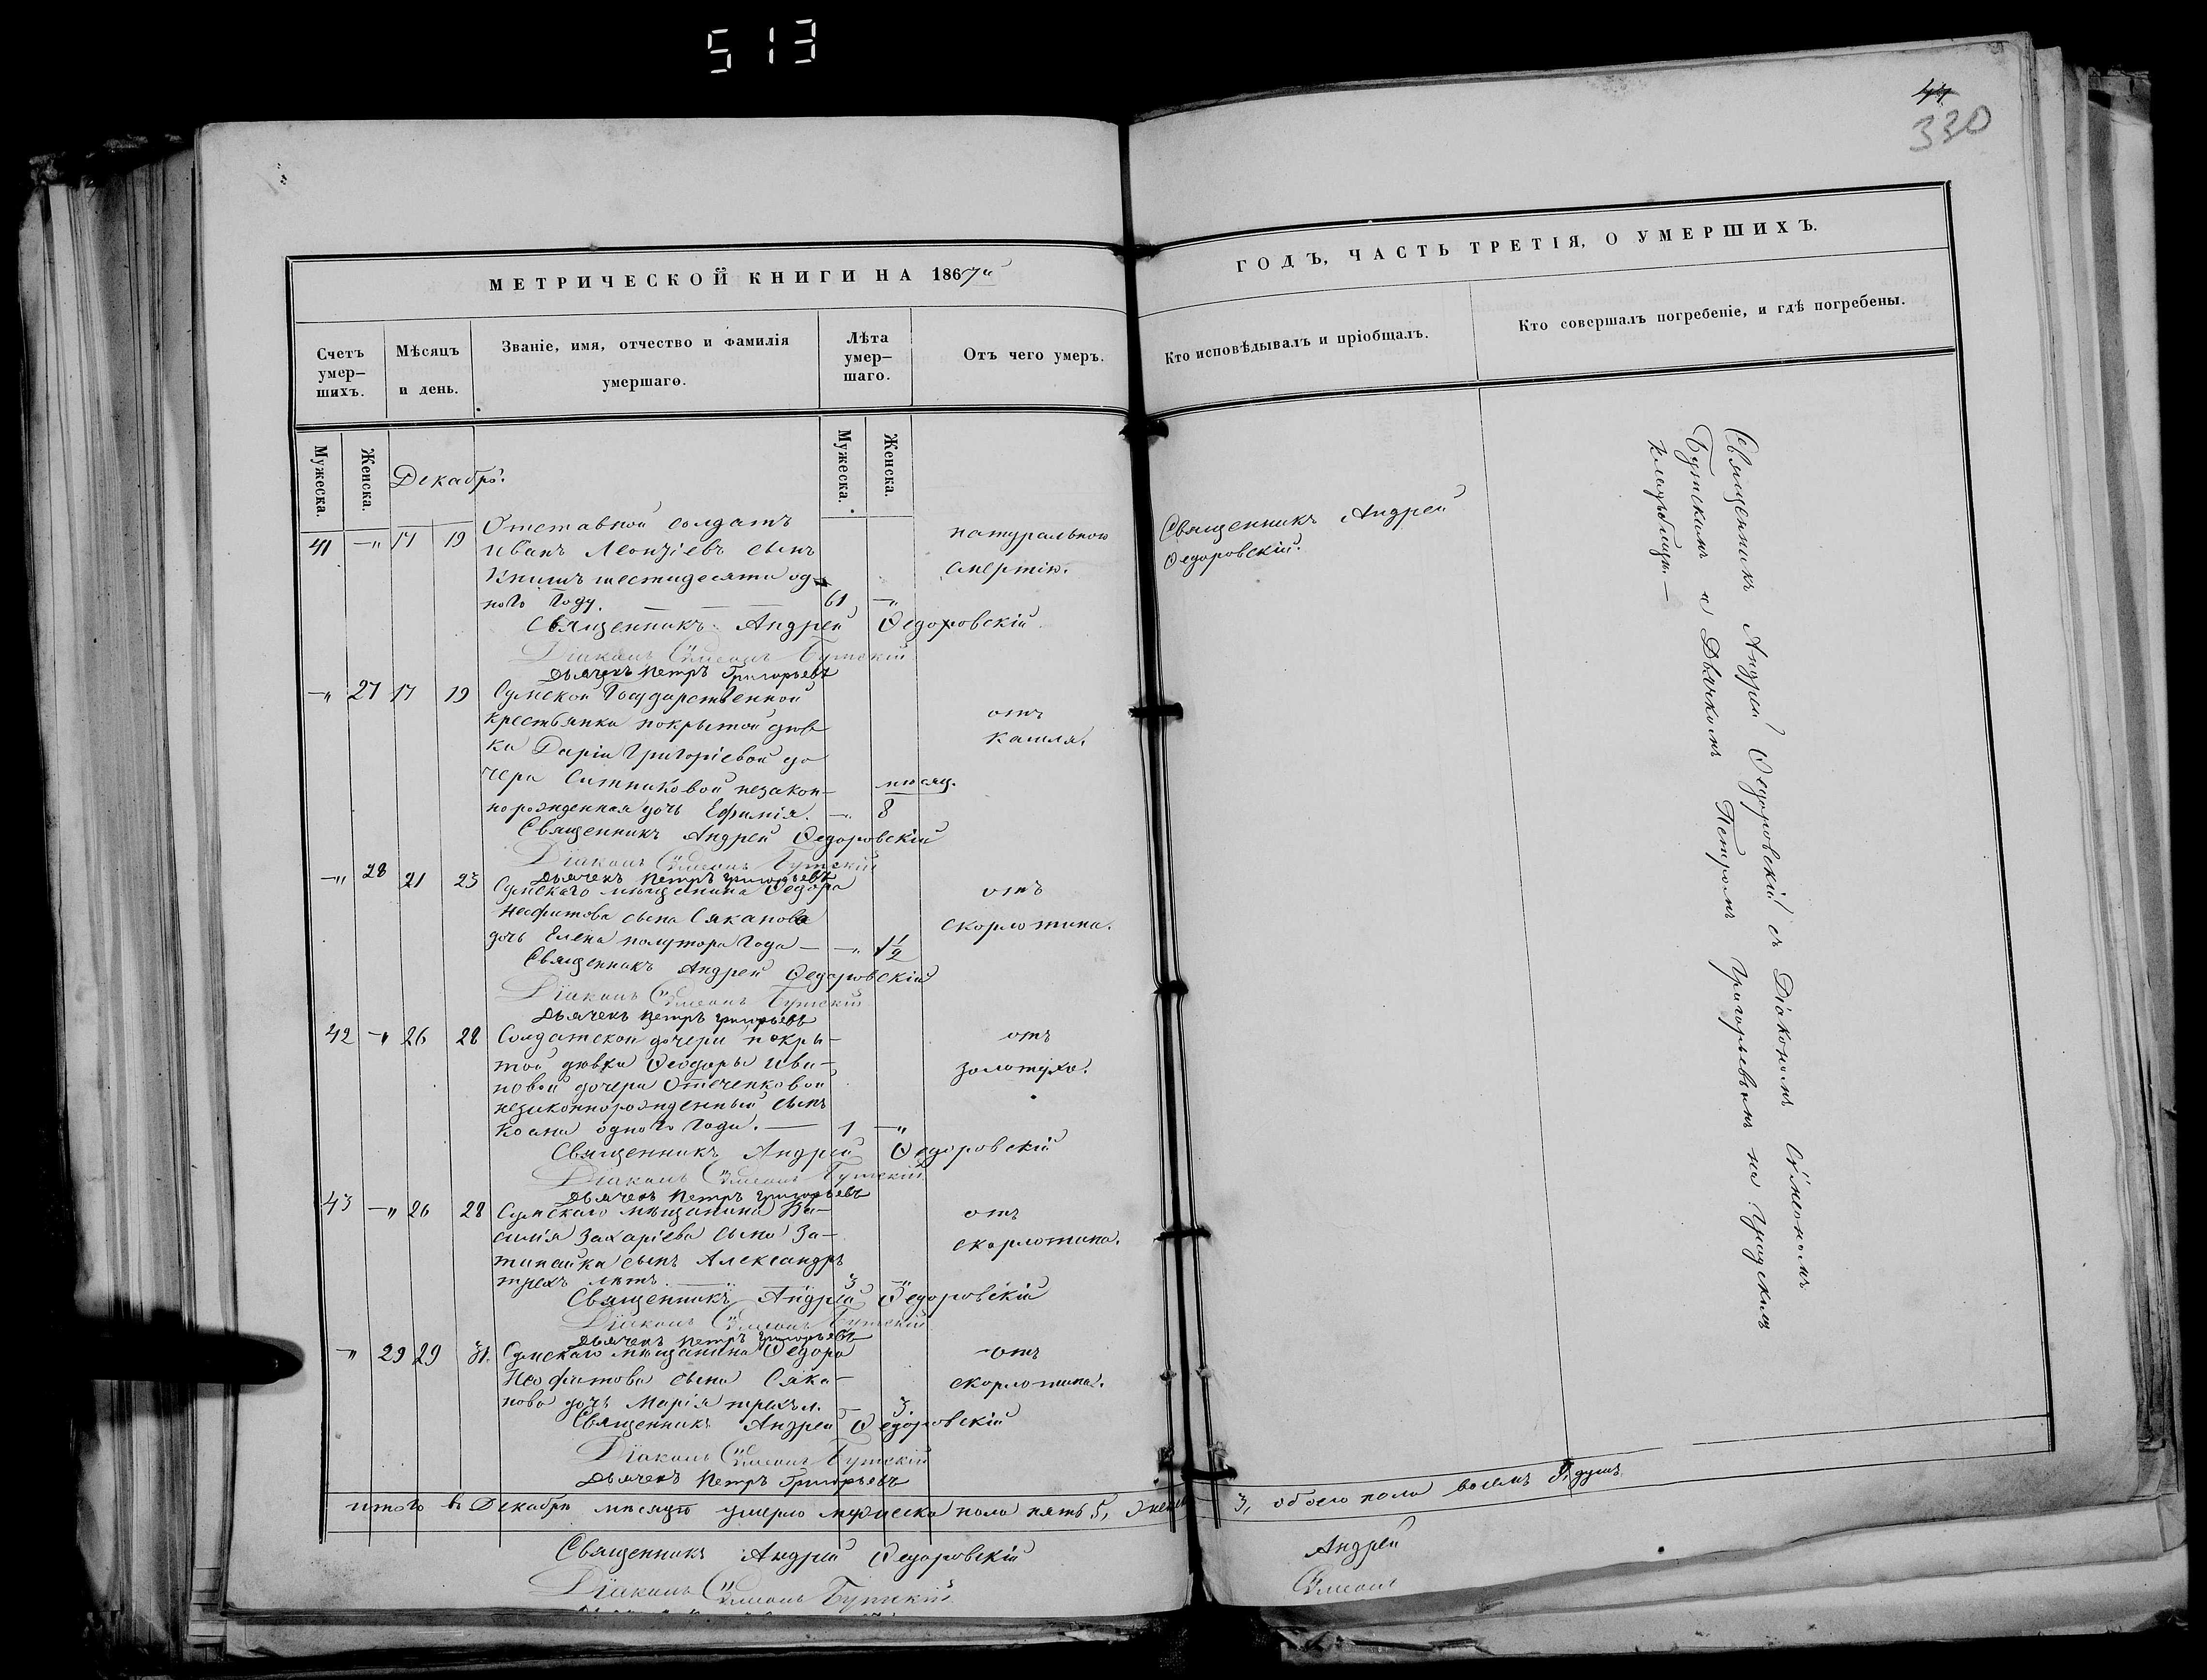 513
44
330
МЕТРИЧЕСКОЙ КНИГИ НА 1867й
Счетъ умер-
шихъ.
Мѣсяцъ
и день.
Званіе, имя, отчество и фамилія
умершаго.
Лѣта
умер-
шаго.
Отъ чего умеръ.
Мужеска.
Женска.
Мужеска.
Женска.
Декабрь.
41 —" 17 19 Отставной солдатъ
Иванъ Леонтіевъ сынъ
Книшъ шестидесяти од-
ного году. — 61 —"
натуральною
смертію.
Священникъ Андрей Ѳедоровскій
Діаконъ Сѵмеонъ Бутскій
Дьячекъ Петръ Григорьевъ
—" 27 17 19 Сумской Государственной
крестьянки покрытой дѣв-
ки Даріи Григоріевой до
чери Ситниковой незакон-
норожденная дочь Ефимія. —" мѣсяц. 8
отъ
кашля.
Священникъ Андрей Ѳедоровскій
Діаконъ Сѵмеонъ Бутскій
Дьячекъ Петръ Григорьевъ
—" 28 21 23 Сумскаго мѣщанина Ѳедора
Неофитова сына Сяканова
дочь Елена полутора года — —" 1 1/2
отъ
скорлотина.
Священникъ Андрей Ѳедоровскій
Діаконъ Сѵмеонъ Бутскій
Дьячекъ Петръ Григорьевъ
42 —" 26 28 Солдатской дочери покры-
той дѣвки Ѳеодоры Ива-
новой дочери Отеченковой
незаконнорожденный сынъ
одного года. — 1 —"
отъ
золотухи.
Священникъ Андрей Ѳедоровскій
Діаконъ Сѵмеонъ Бутскій
Дьячекъ Петръ Григорьевъ
43 —" 26 28 Сумскаго мѣщанина Ва-
силія Захаріева сына За-
сынъ Александръ
трехъ лѣтъ — 3 —"
отъ
скорлотина.
Священникъ Андрей Ѳедоровскій
Діаконъ Сѵмеонъ Бутскій
Дьячекъ Петръ Григорьевъ
—" 29 29 31. Сумскаго мѣщанина Ѳедора
Неофитова сына Сяка-
нова дочь Марія трехъ л. — 3.
отъ
скорлотина.
Священникъ Андрей Ѳедоровскій
Діаконъ Сѵмеонъ Бутскій
Дьячекъ Петръ Григорьевъ
итого въ Декабрѣ мѣсяцѣ умерло мужеска пола пять 5,
Священникъ Андрей Ѳедоровскій
Діаконъ Сѵмеонъ Бутскій
ГОДЪ, ЧАСТЬ ТРЕТІЯ, О УМЕРШИХЪ.
Кто исповѣдывалъ и пріобщалъ.
Кто совершалъ погребеніе, и гдѣ погребены.
Священникъ Андрей
Ѳедоровскій.
Священникъ Андрей Ѳедоровскій съ Діакономъ Сѵмеономъ
Бутскимъ и Дьячкомъ Петромъ Григорьевымъ на градскомъ
кладбищѣ.—
3, обоего пола восемь 8, душъ.
Андрей
Сѵмеонъ